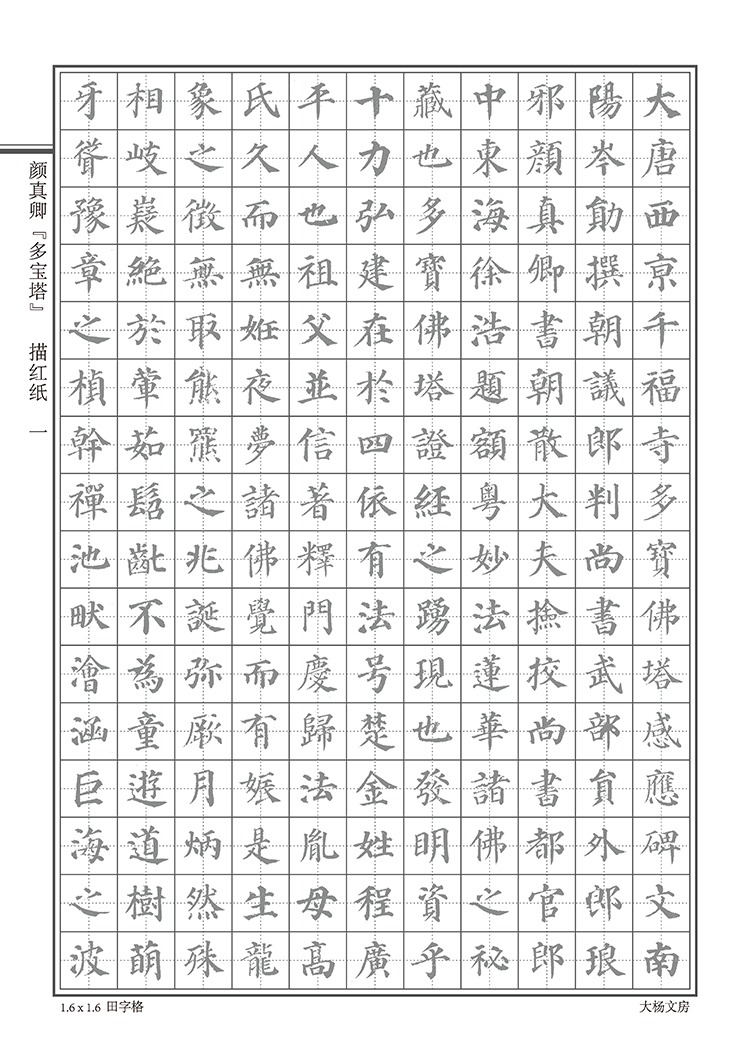 大唐西京千福寺多寶佛塔感應碑文南
陽岑勛撰朝議郎判尚書武部員外郎琅
邪顏真卿書朝散大夫撿挍尚書都官郎
中東海徐浩題額粵妙法蓮華諸佛之祕
藏也多寶佛塔證經之踴現也發明資乎
十力弘建在於四依有法号楚金姓程廣
平人也祖父並信著釋門慶歸法胤母高
氏久而無姙夜夢諸佛覺而有娠是生龍
象之徵無取熊羆之兆誕弥厥月炳然殊
相岐嶷絕於葷茹髫齓不為童遊道樹萌
牙聳豫章之楨幹禪池畎澮涵巨海之波
颜真卿『多宝塔』 描红纸 一
1.6 x 1.6 田字格
大杨文房